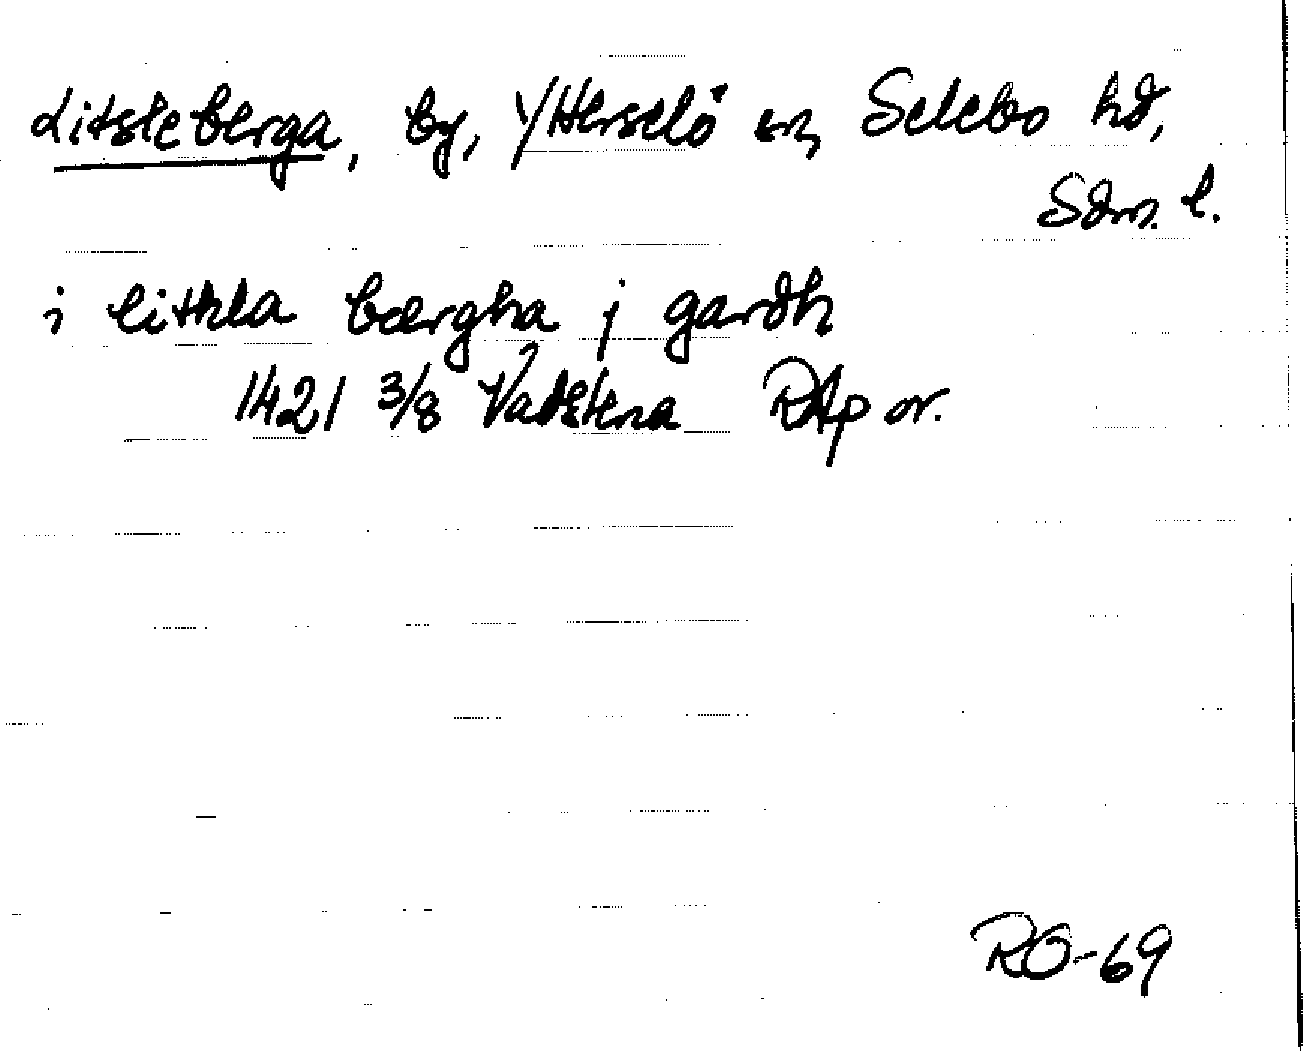 Litsleberga, by, Ytterselö sn, Selebo hd,
Sdm. l.
i lithla bærgha j gardh
1421 3/8 Vadstena RAp or.
RO-69